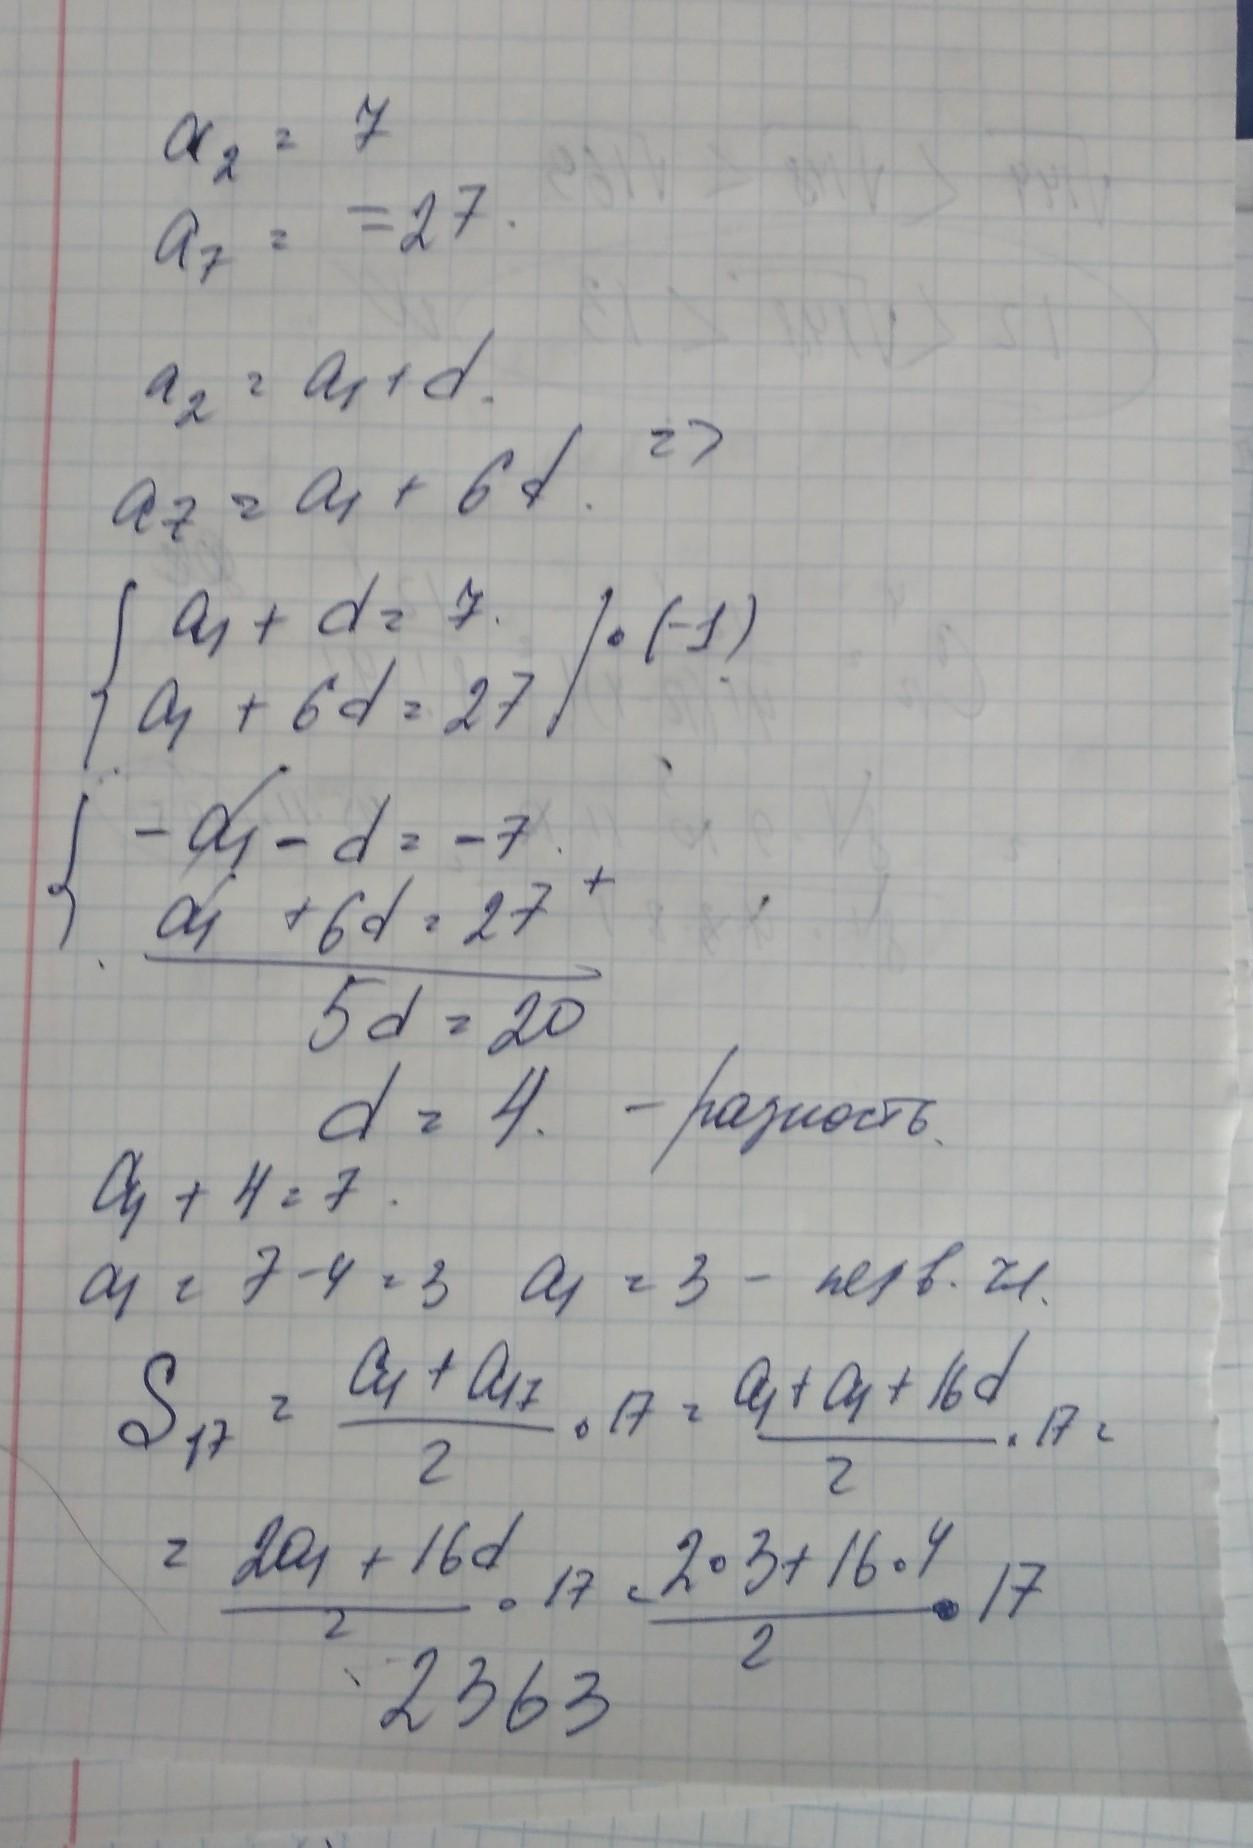 a₂ = 7
a₇ = =27.
a₂ = a₁ + d.
a₇ = a₁ + 6d. =>
{ a₁ + d = 7.
a₁ + 6d = 27 / · (-1)
{ -a₁ - d = -7.
a₁ + 6d = 27 +
5d = 20
d = 4. - разность.
a₁ + 4 = 7.
a₁ = 7 - 4 = 3 a₁ = 3 - перв. чл.
S₁₇ = (a₁ + a₁₇)/2 · 17 = (a₁ + a₁ + 16d)/2 · 17 =
= (2a₁ + 16d)/2 · 17 = (2·3 + 16·4)/2 · 17
2363